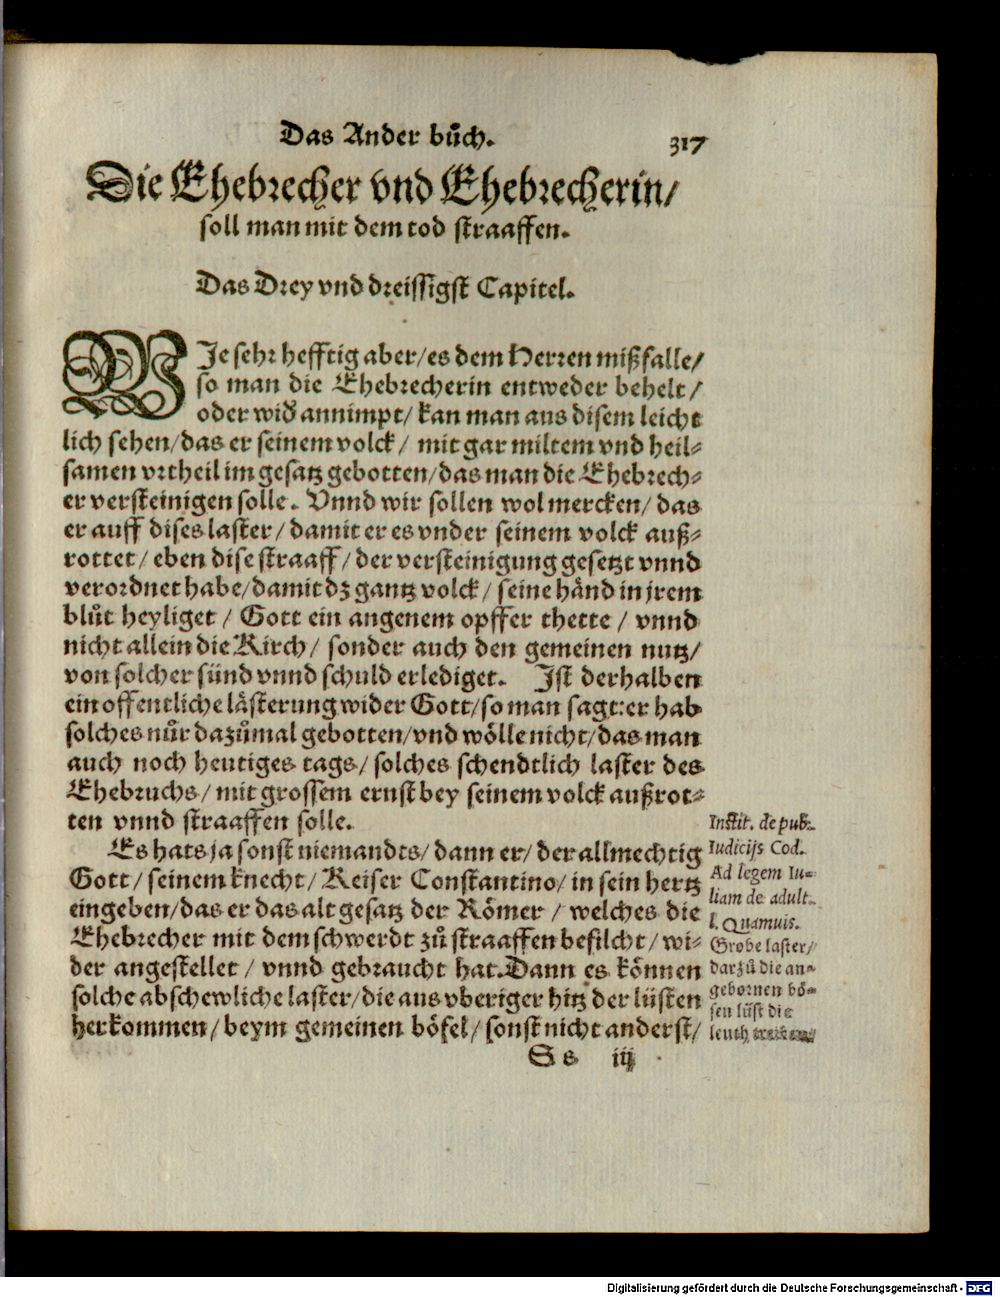 Das Ander bůch. 317
Die Ehebrecher vnd Ehebrecherin/
soll man mit dem tod straaffen.
Das Drey vnd dreissigst Capitel.
WJe sehr hefftig aber/es dem Herren mißfalle/
so man die Ehebrecherin entweder behelt/
oder wid annimpt/ kan man aus disem leicht
lich sehen/das er seinem volck/ mit gar miltem vnd heil-
samen vrtheil im gesatz gebotten/das man die Ehebrech-
er versteinigen solle. Vnnd wir sollen wol mercken/ das
er auff dises laster/ damit er es vnder seinem volck auß-
rottet/ eben dise straaff/ der versteinigung gesetzt vnnd
verordnet habe/damit dz gantz volck/ seine händ in jrem
blůt heyliget/ Gott ein angenem opffer thette/ vnnd
nicht allein die Kirch/ sonder auch den gemeinen nutz/
von solcher sünd vnnd schuld erlediget. Jst derhalben
ein offentliche lästerung wider Gott/so man sagt:er hab
solches nůr dazůmal gebotten/vnd wölle nicht/das man
auch noch heutiges tags/ solches schendtlich laster des
Ehebruchs/ mit grossem ernst bey seinem volck außrot-
ten vnnd straaffen solle.
Es hats ja sonst niemandts/ dann er/ der allmechtig
Gott/ seinem knecht/ Keiser Constantino/ in sein hertz
eingeben/das er das alt gesatz der Römer/ welches die
Ehebrecher mit dem schwerdt zů straaffen befilcht/ wi-
der angestellet/ vnnd gebraucht hat. Dann es können
solche abschewliche laster/die aus vberiger hitz der lüsten
herkommen/ beym gemeinen böfel/ sonst nicht anderst/
Ss iij
Instit. de pub.
Iudicijs Cod.
Ad legem Iu-
liam de adult.
l. Quamuis.
Grobe laster/
darzů die an-
gebornen bö-
sen lüst die
leuth
Digitalisierung gefördert durch die Deutsche Forschungsgemeinschaft - DFG